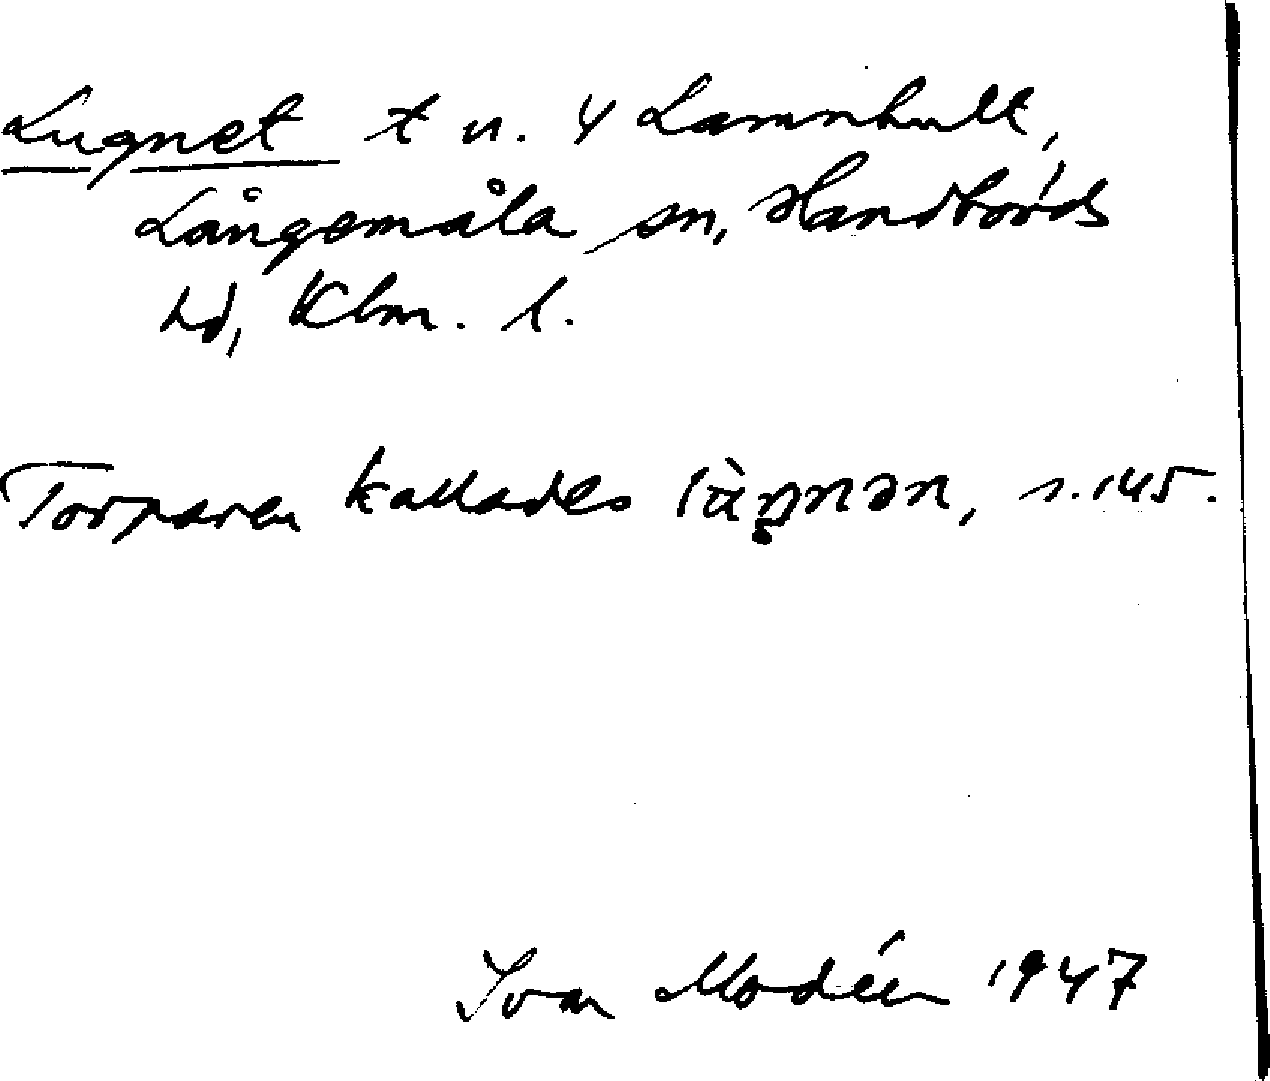 Lugnet t u. 4 Lamnhult,
Långemåla sn, Handbörds
hd, Klm. l.
Torparen kallades s. 145.
Ivar Modéer 1947